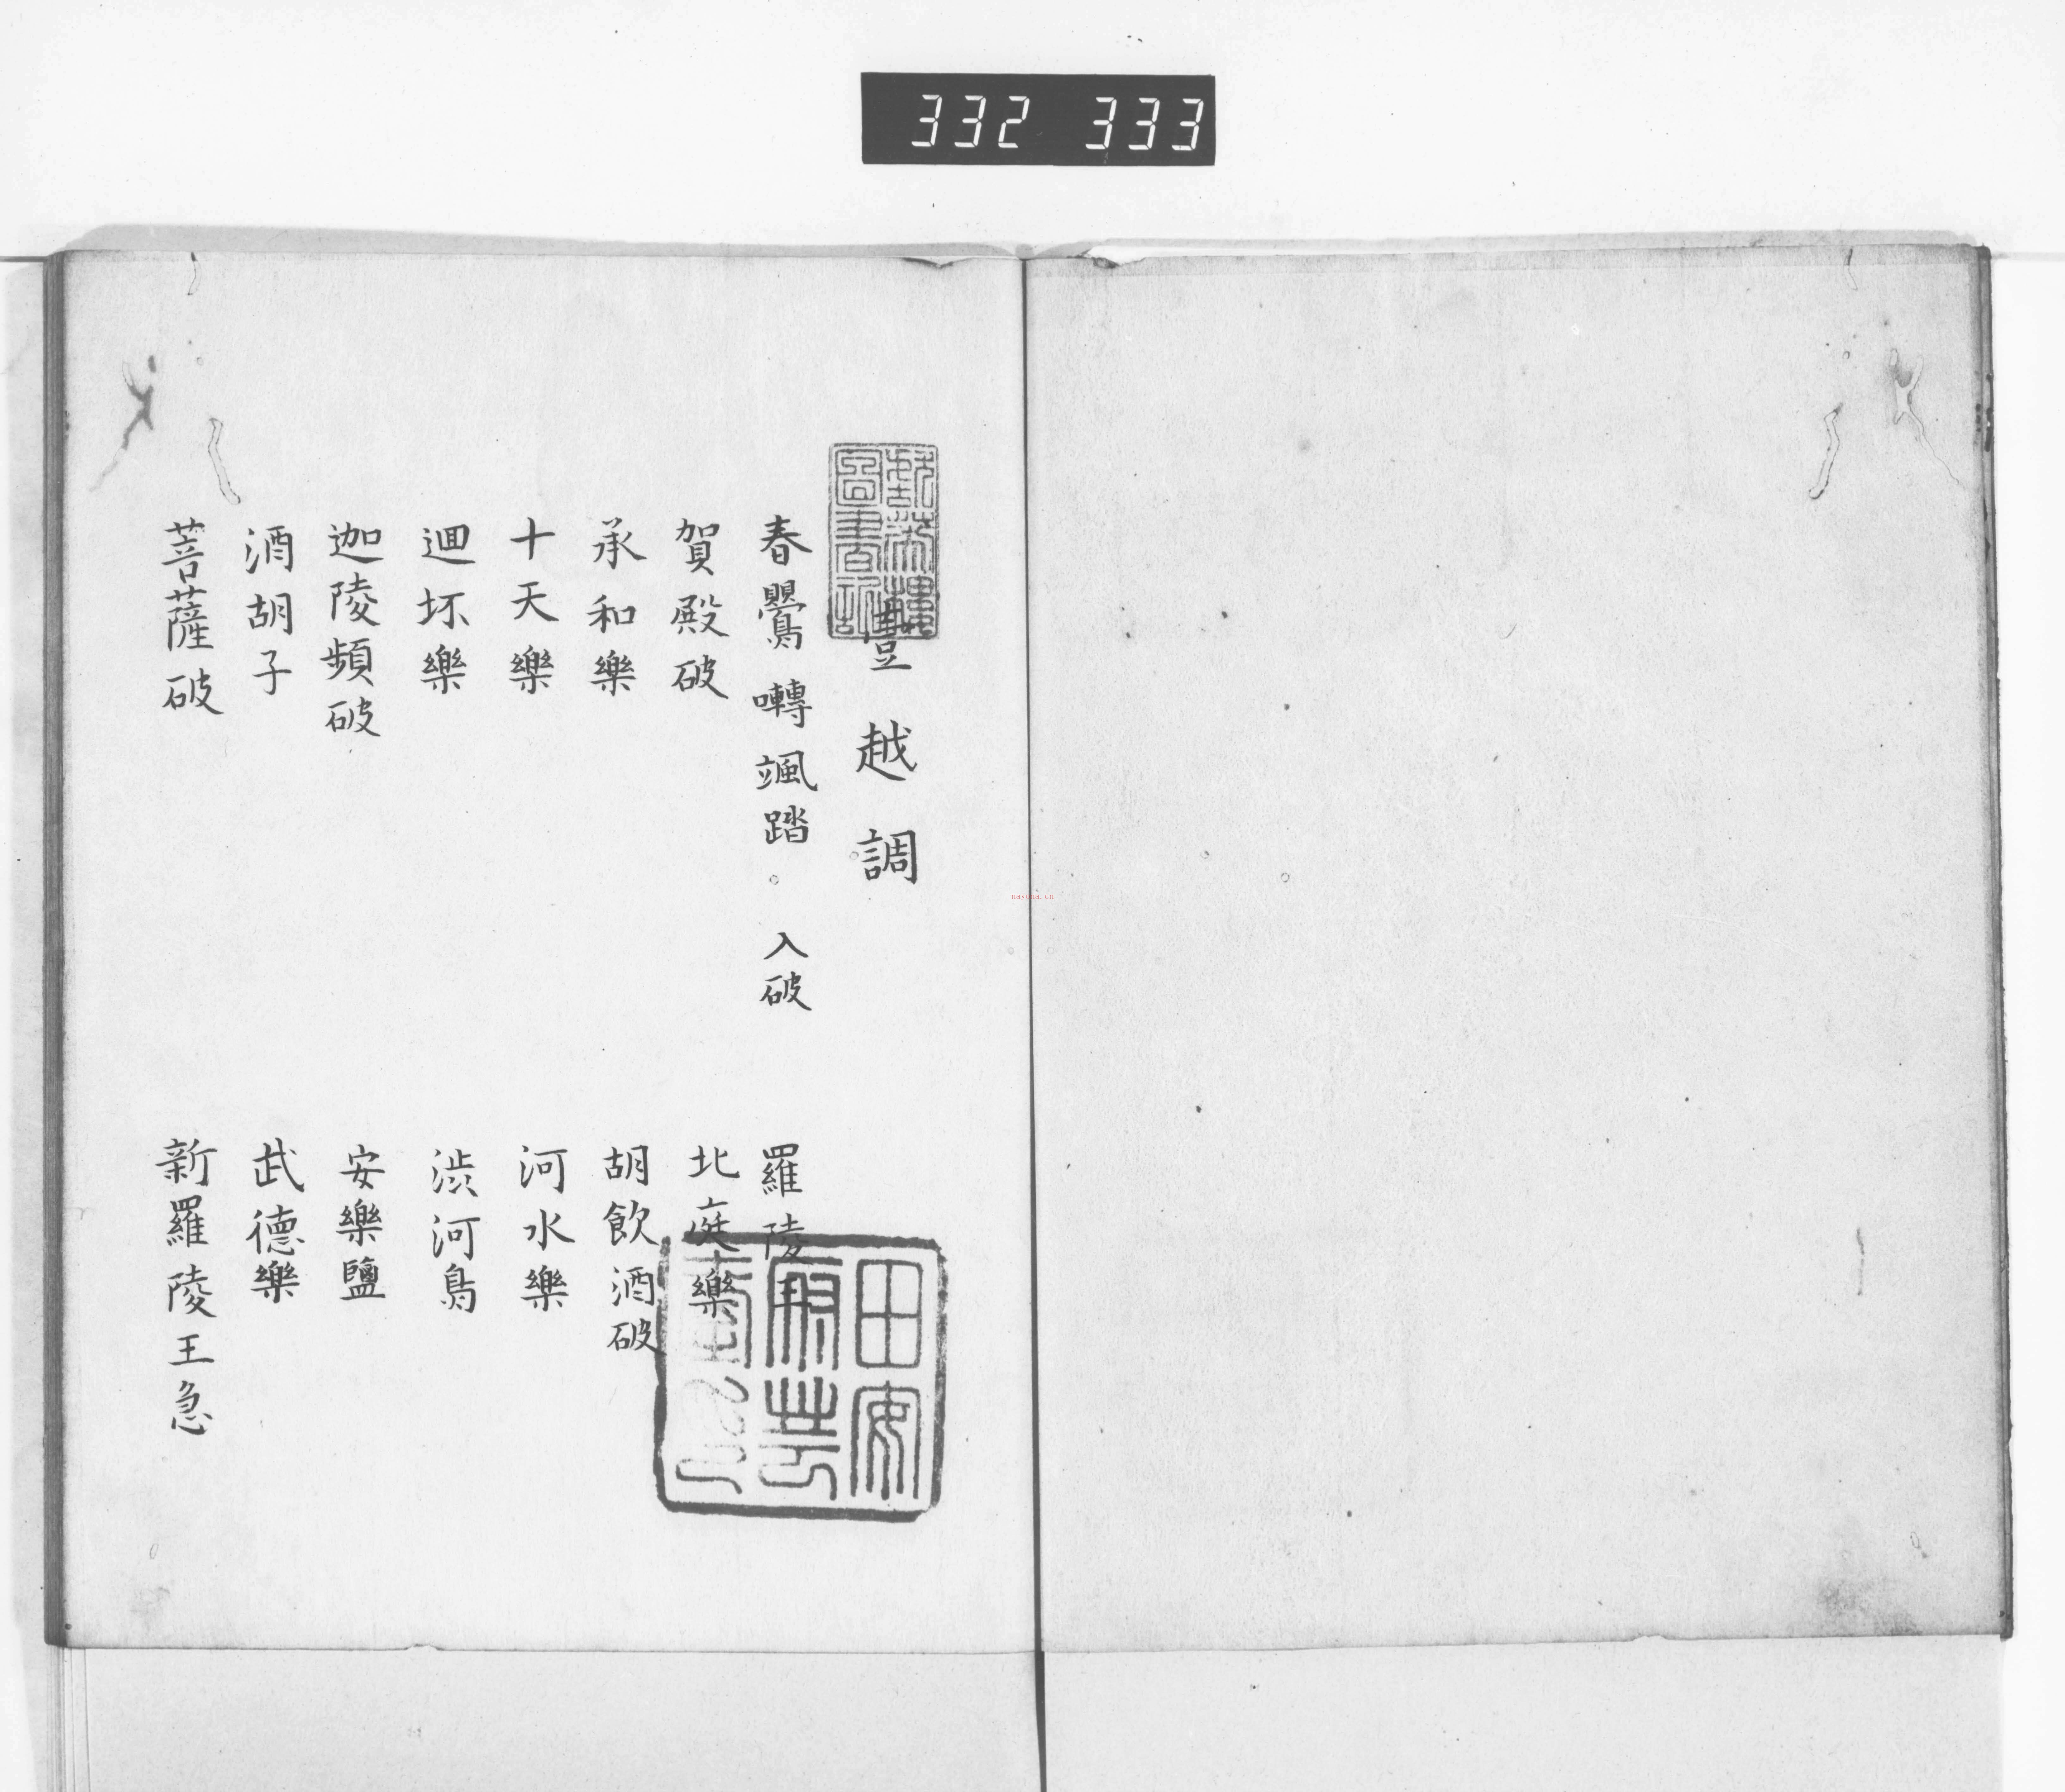 332 333
壹越調
春鸎囀颯踏 入破 羅陵王
賀殿破 北庭樂
承和樂 胡飲酒破
十天樂 河水樂
迴坏樂 渋河鳥
迦陵頻破 安樂鹽
酒胡子 武德樂
菩薩破 新羅陵王急
田安
府芸
nayona.cn